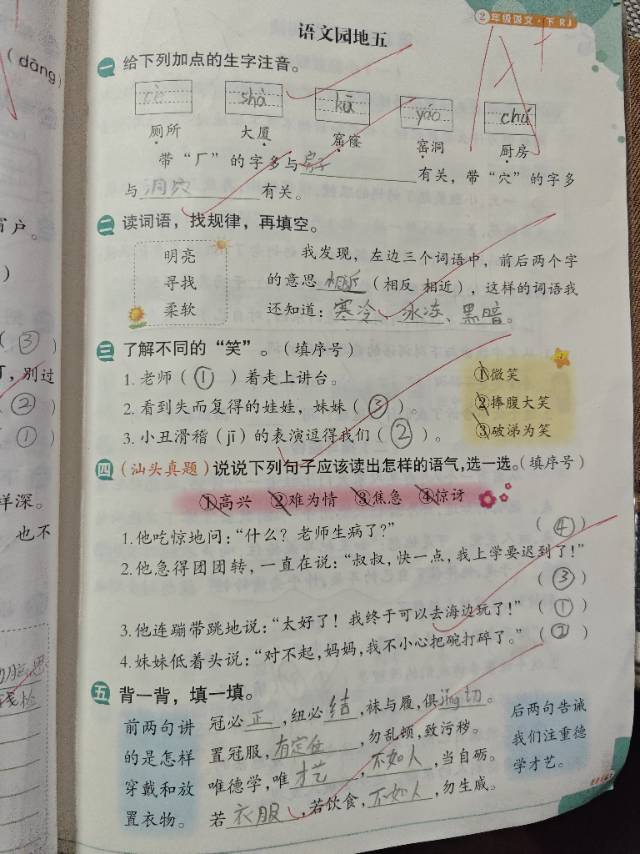 ②年级语文·下 RJ
语文园地五
一 给下列加点的生字注音。
cè shà kū yáo chú
厕所 大厦 窟窿 窑洞 厨房
带“厂”的字多与房子有关，带“穴”的字多
与洞穴有关。
二 读词语，找规律，再填空。
明亮
寻找
柔软
我发现，左边三个词语中，前后两个字
的意思相近（相反 相近），这样的词语我
还知道：寒冷、冰冻、黑暗。
三 了解不同的“笑”。（填序号）
1.老师（①）着走上讲台。
2.看到失而复得的娃娃，妹妹（③）。
3.小丑滑稽（jī）的表演逗得我们（②）。
①微笑
②捧腹大笑
③破涕为笑
四 （汕头真题）说说下列句子应该读出怎样的语气，选一选。（填序号）
①高兴 ②难为情 ③焦急 ④惊讶
1.他吃惊地问：“什么？老师生病了？” （④）
2.他急得团团转，一直在说：“叔叔，快一点，我上学要迟到了！”
（③）
3.他连蹦带跳地说：“太好了！我终于可以去海边玩了！”（①）
4.妹妹低着头说：“对不起，妈妈，我不小心把碗打碎了。”（②）
五 背一背，填一填。
前两句讲
的是怎样
穿戴和放
置衣物。
冠必正，纽必结，袜与履，俱jǐng切。
置冠服，有定位，勿乱顿，致污秽。
唯德学，唯才艺，不如人，当自砺。
若衣服，若饮食，不如人，勿生戚。
后两句告诫
我们注重德
学才艺。
(dāng)
户。
（③）
，别过
②）
①）
样深。
也不